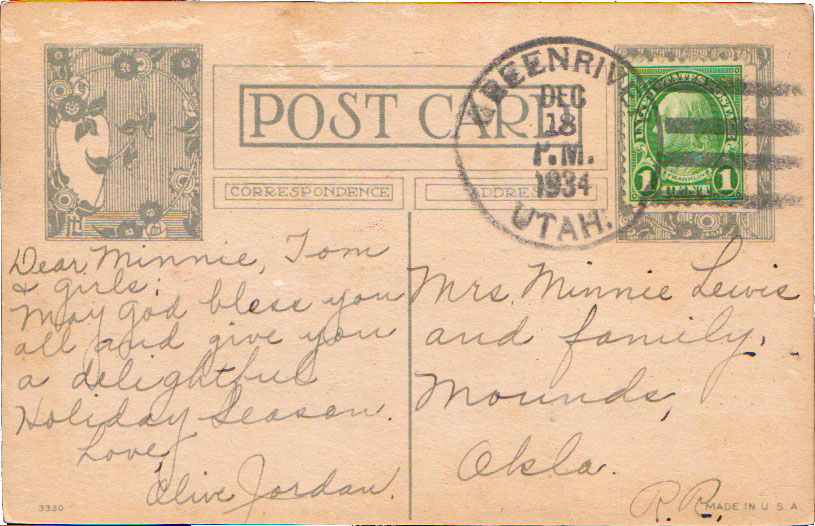 POST CARD
GREENRIVER
DEC
18
P.M.
1934
UTAH.
UNITED STATES POSTAGE
FRANKLIN
1 CENT 1
CORRESPONDENCE
ADDRESS
Dear Minnie, Tom
& girls:
May God bless you
all and give you
a delightful
Holiday Season.
Love,
Olive Jordan.
Mrs. Minnie Lewis
and family,
Mounds,
Okla.
R.R.
3330
MADE IN U.S.A.